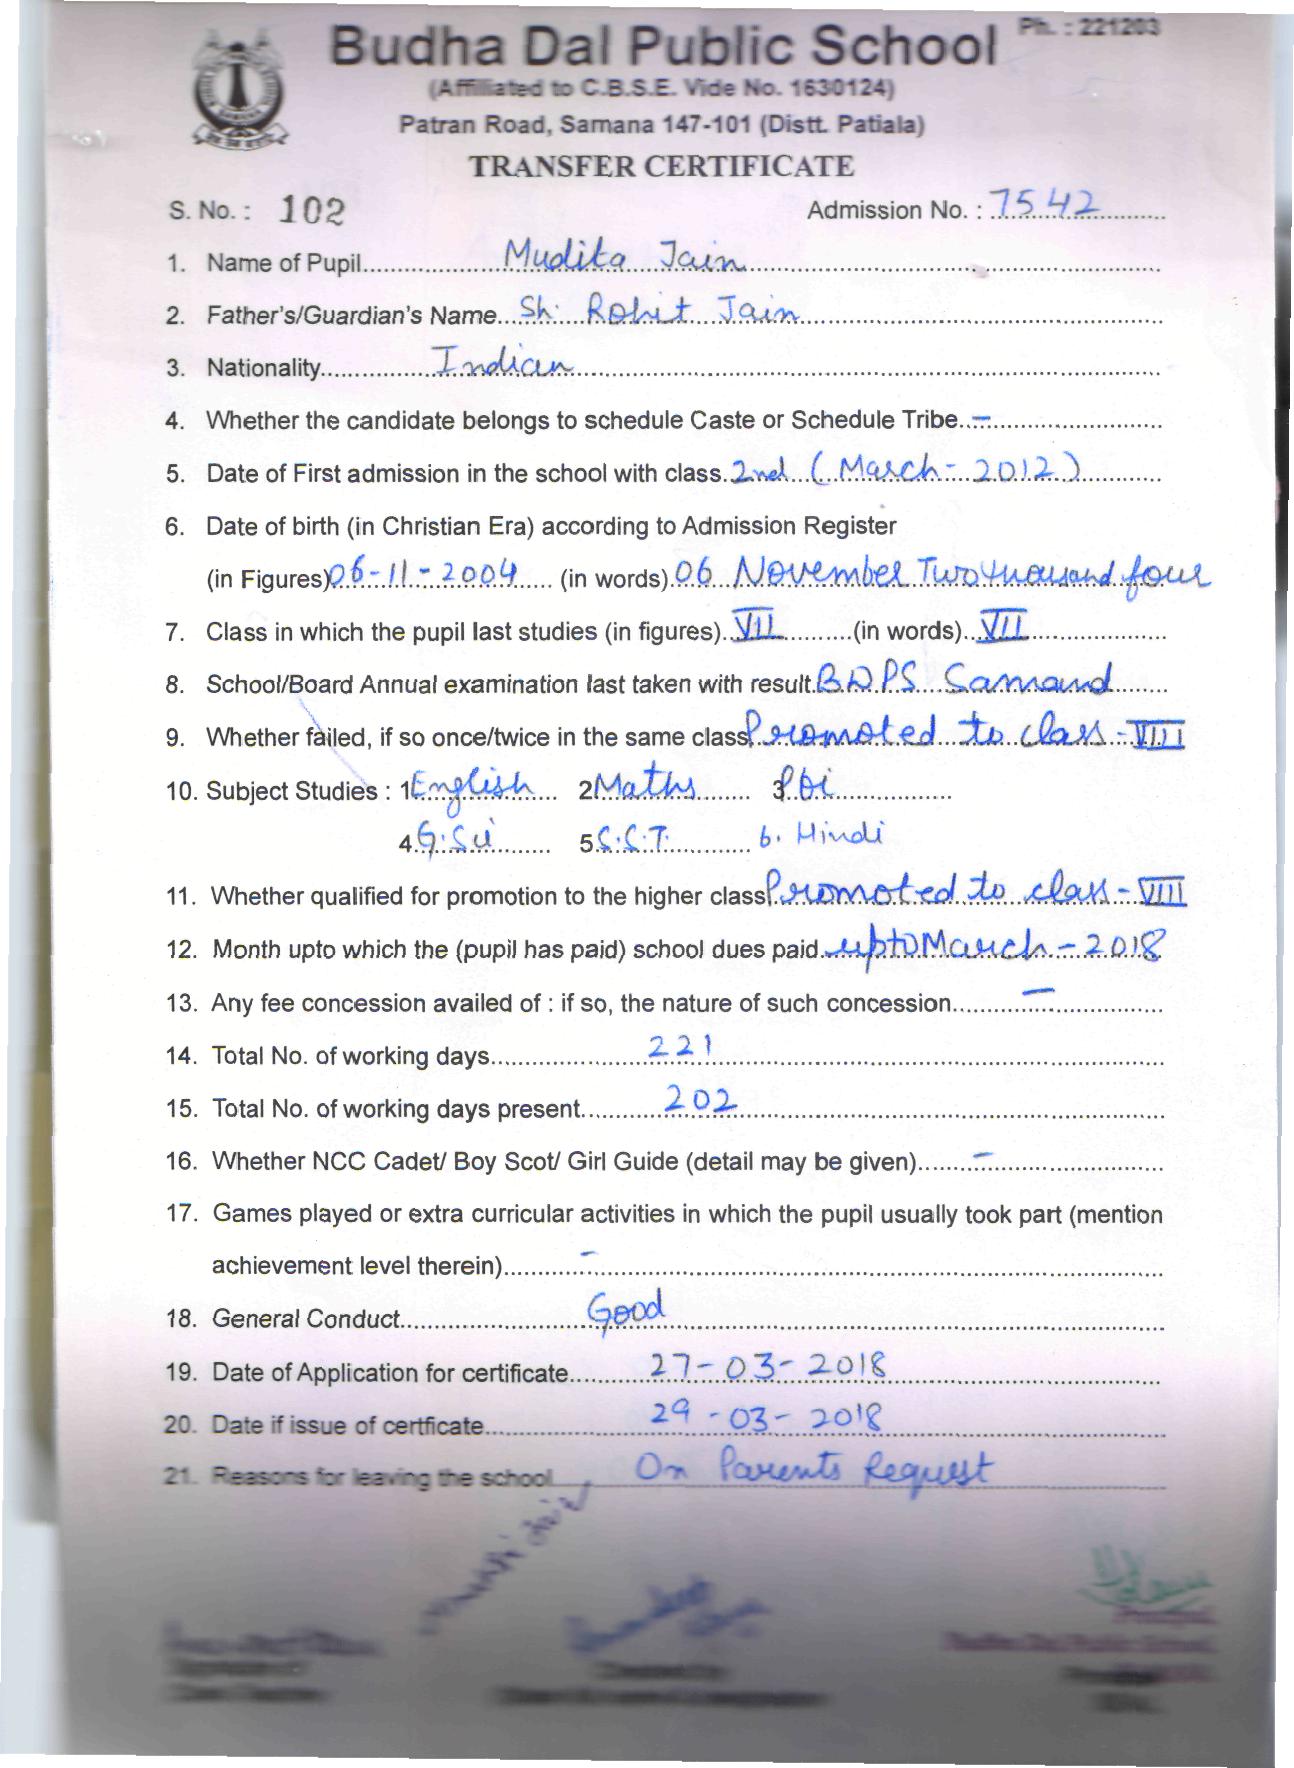 Ph. : 221203
Budha Dal Public School
(Affiliated to C.B.S.E. Vide No. 1630124)
Patran Road, Samana 147-101 (Distt. Patiala)
TRANSFER CERTIFICATE
S. No. : 102 Admission No. : 7542
1. Name of Pupil Mudita Jain
2. Father's/Guardian's Name Sh. Rohit Jain
3. Nationality Indian
4. Whether the candidate belongs to schedule Caste or Schedule Tribe. -
5. Date of First admission in the school with class 2nd (March-2012)
6. Date of birth (in Christian Era) according to Admission Register
(in Figures) 06-11-2004 (in words) 06 November Two thousand four
7. Class in which the pupil last studies (in figures) VII (in words) VII
8. School/Board Annual examination last taken with result. BDPS
9. Whether failed, if so once/twice in the same class Promoted to class - VIII
10. Subject Studies : 1 English 2 Maths 3 Pbi
4. G.Sci 5 S.S.T. 6. Hindi
11. Whether qualified for promotion to the higher class Promoted to class - VIII
12. Month upto which the (pupil has paid) school dues paid upto March - 2018
13. Any fee concession availed of : if so, the nature of such concession -
14. Total No. of working days 221
15. Total No. of working days present 202
16. Whether NCC Cadet/ Boy Scot/ Girl Guide (detail may be given) -
17. Games played or extra curricular activities in which the pupil usually took part (mention
achievement level therein) -
18. General Conduct Good
19. Date of Application for certificate 27-03-2018
20. Date if issue of certficate 29-03-2018
21. Reasons for leaving the school On Parents Request
Budha Dal Public School